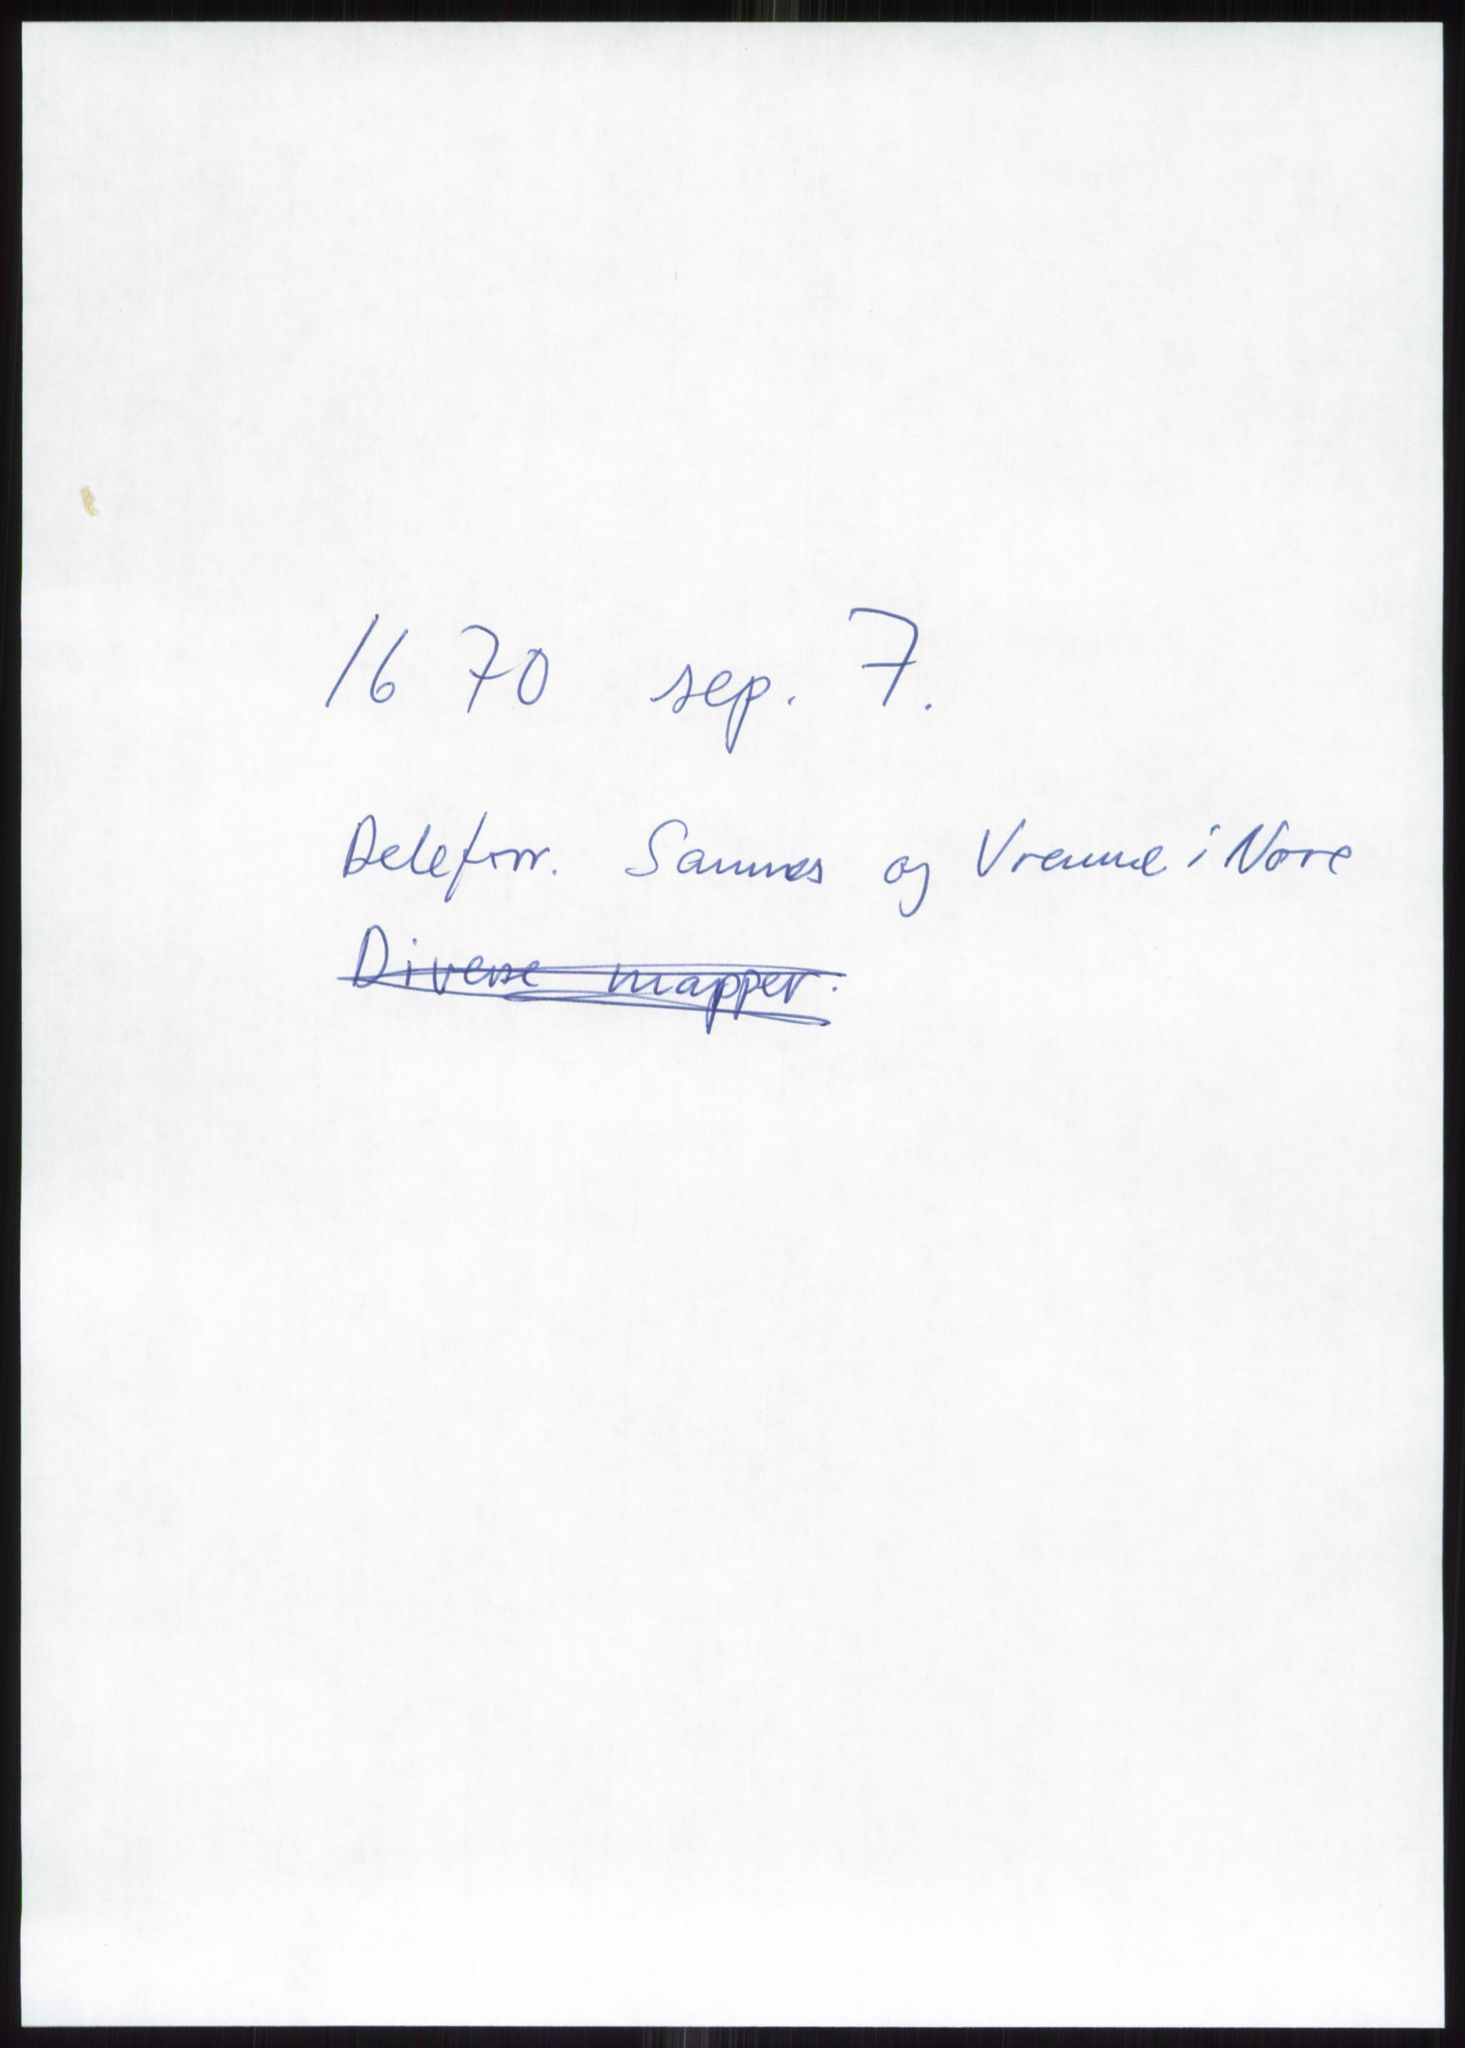 1670 sep. 7.
Deleforr. Sannes og Vrenne i Nore
Diverse mapper.